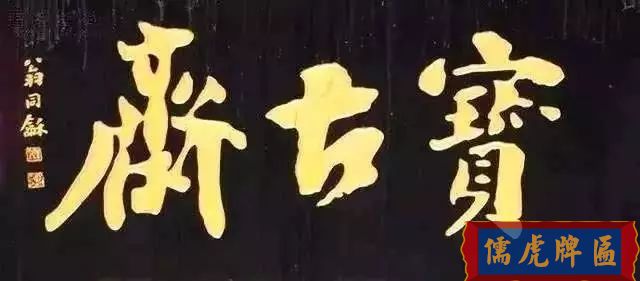 寶古齋
翁同龢
儒虎牌匾